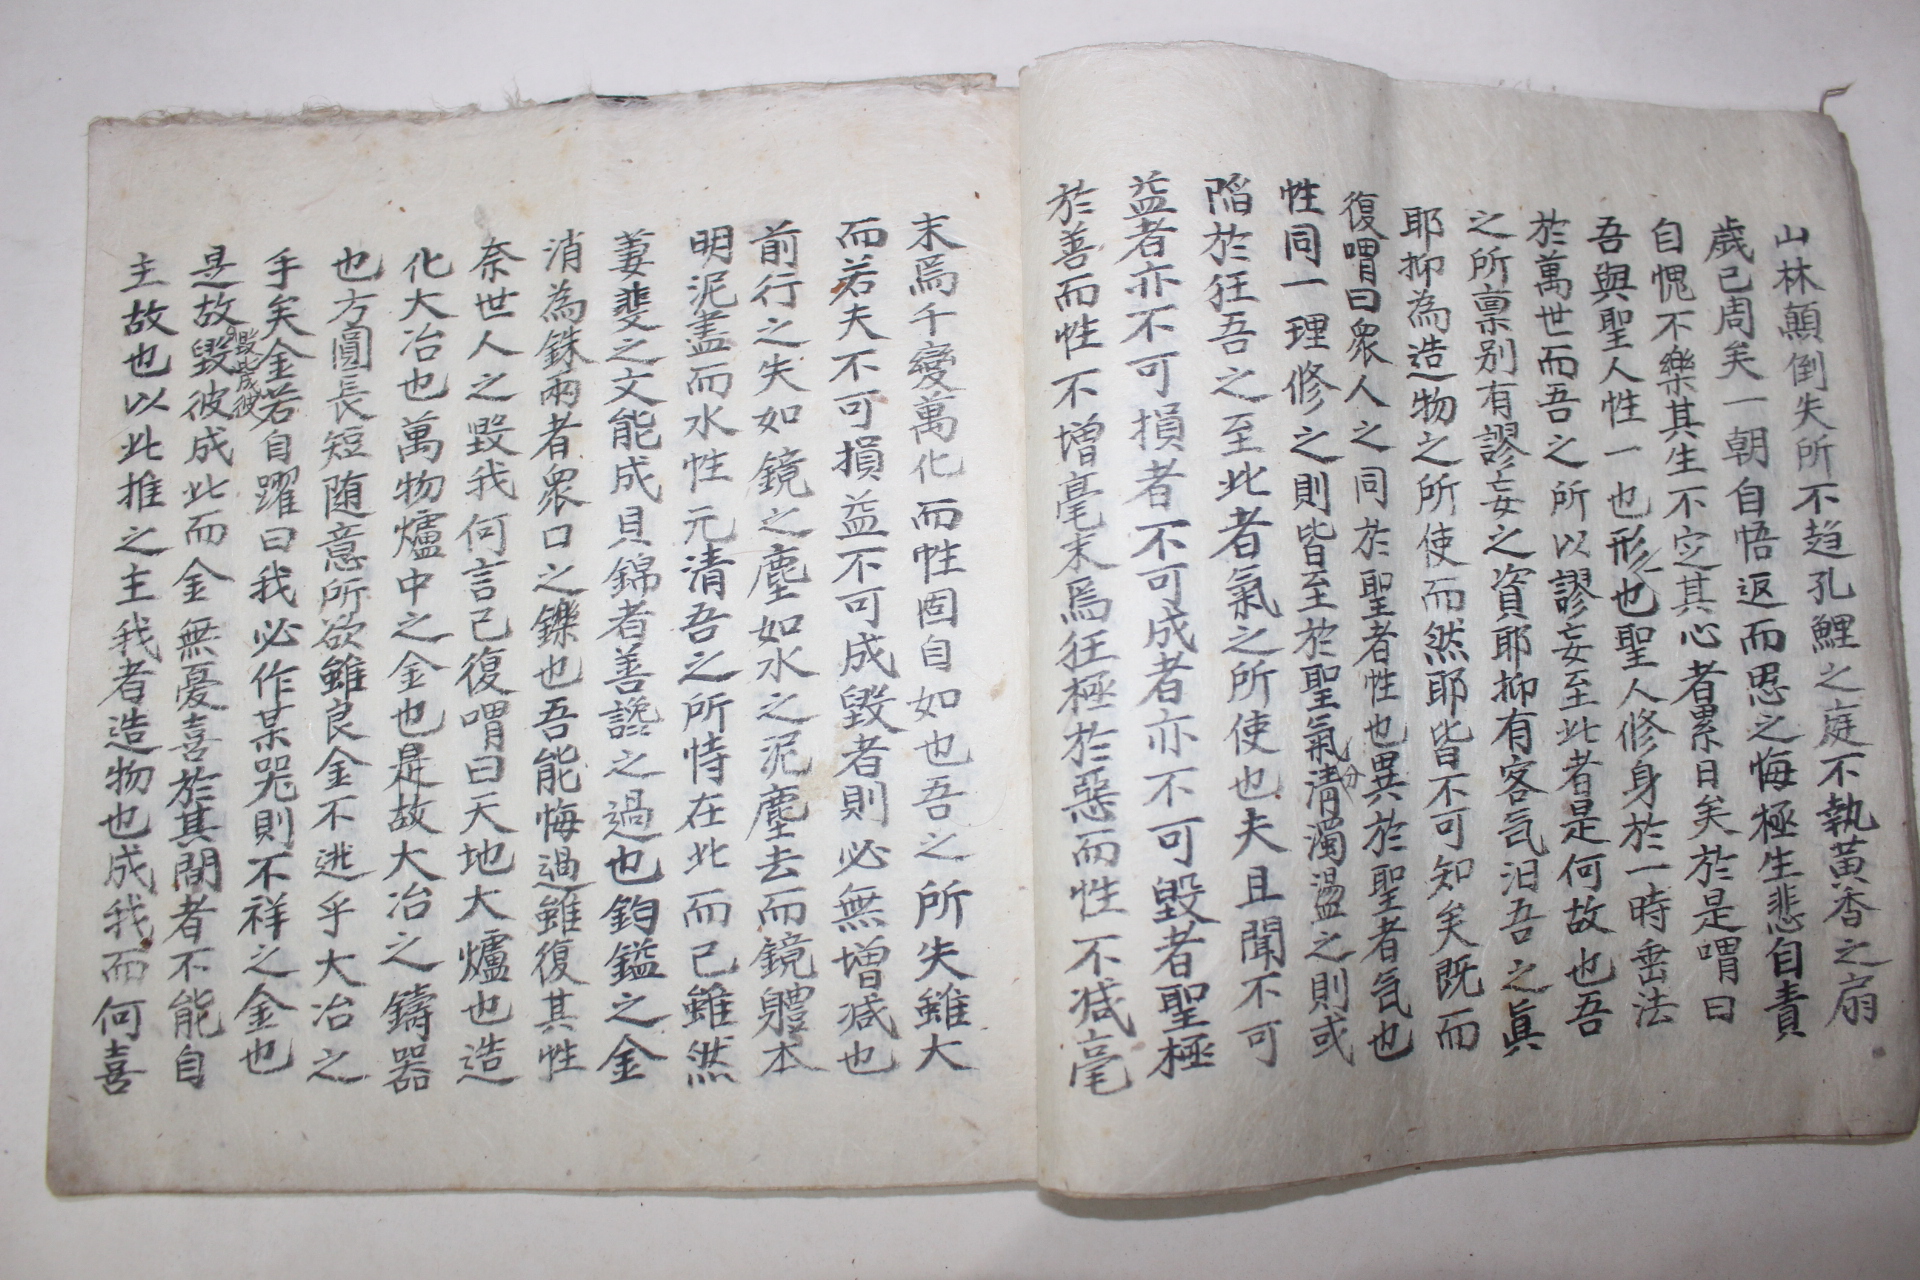 山林顚倒失所不趍孔鯉之庭不執黃香之扇
歲已周矣一朝自悟返而思之悔極生悲自責
自愧不樂其生不㝎其心者累日矣於是喟曰
吾與聖人性一也形一也聖人修身於一時垂法
於萬世而吾之所以謬妄至此者是何故也吾
之所禀别有謬妄之資耶抑有客気汨吾之眞
耶抑為造物之所使而然耶皆不可知矣既而
復喟曰衆人之同於聖者性也異於聖者気也
性同一理修之則皆至於聖氣分清濁盪之則或
陷於狂吾之至此者氣之所使也夫且聞不可
益者亦不可損者不可成者亦不可毀者聖極
於善而性不增毫末焉狂極於惡而性不减毫
末焉千變萬化而性固自如也吾之所失雖大
而若夫不可損益不可成毀者則必無增减也
前行之失如鏡之塵如水之泥塵去而鏡軆本
明泥盡而水性元清吾之所恃在此而已雖然
萋斐之文能成貝錦者善讒之過也鈞鎰之金
消為銖兩者衆口之鑠也吾能悔過雖復其性
奈世人之毀我何言已復喟曰天地大爐也造
化大冶也萬物爐中之金也是故大冶之鑄器
也方圓長短随意所欲雖良金不逃乎大冶之
手矣金若自躍曰我必作某器則不祥之金也
是故毀彼成此毀此成彼而金無憂喜於其間者不能自
主故也以此推之主我者造物也成我而何喜